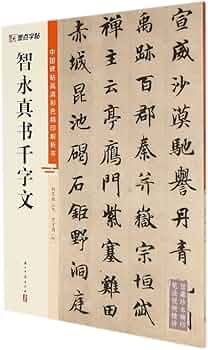 墨点字帖
中国碑帖高清彩色精印解析本
智永真书千字文
宣威沙漠馳譽丹青
禹跡百郡秦并嶽宗恒岱
禪主云亭鴈門紫塞雞田
赤城昆池碣石鉅野洞庭